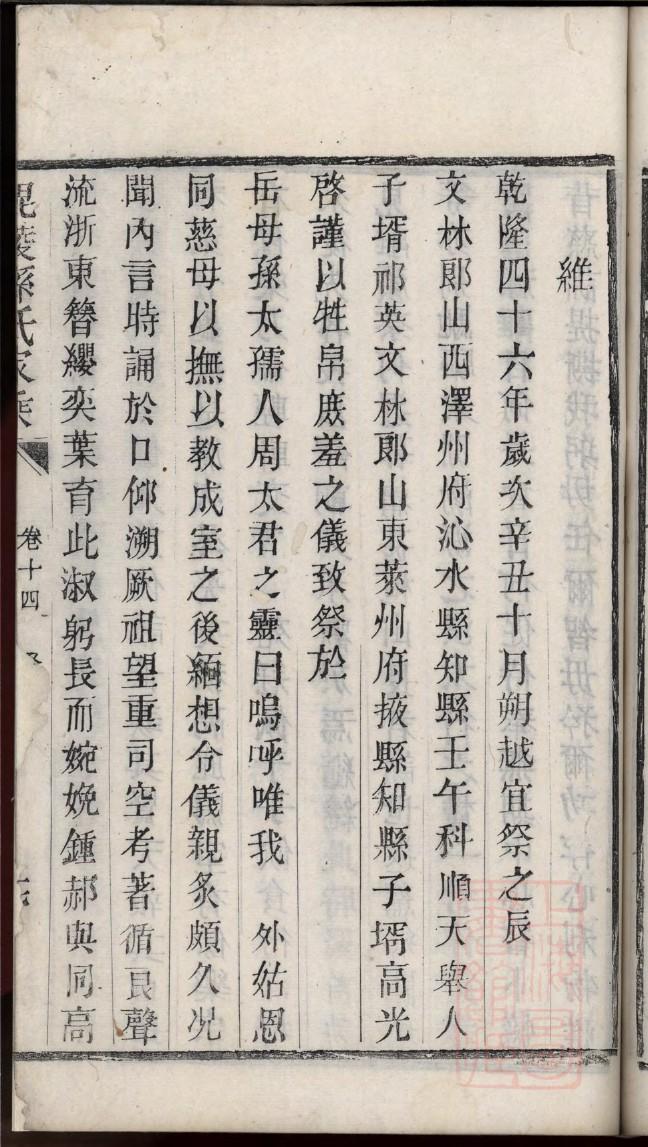 維
乾隆四十六年歲次辛丑十月朔越宜祭之辰
文林郎山西澤州府沁水縣知縣壬午科順天舉人
子壻祁英文林郎山東萊州府掖縣知縣子壻高光
啓謹以牲帛庶羞之儀致祭於
岳母孫太孺人周太君之靈曰嗚呼唯我 外姑恩
同慈母以撫以教成室之後緬想令儀親炙頗久況
聞內言時誦於口仰溯厥祖望重司空考著循良聲
流浙東簪纓奕葉育此淑躬長而婉娩鍾郝與同高
毘陵孫氏家乘
卷十四